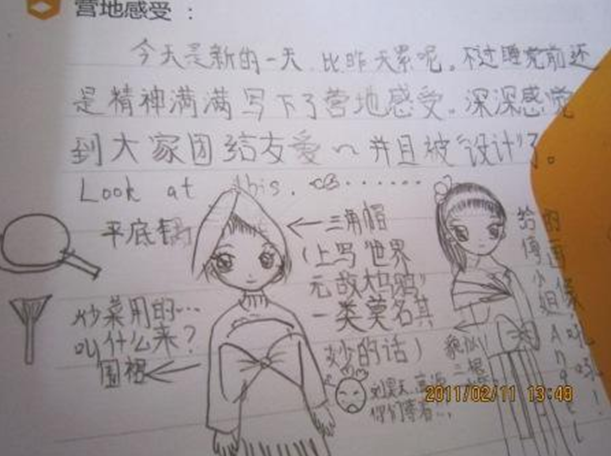 营地感受：
今天是新的一天，比昨天累呢。不过睡觉前还
是精神满满写下了营地感受。深深感觉
到大家团结友爱～并且被“设计”了。
Look at this.
平底锅
三角帽
(上写“世界
无敌大鸭”
一类莫名其
妙的话)
炒菜用的…
叫什么来？
围裙
貌似
二裙
你们等着…
给的
停画
小
姐像
2011/02/11 13:48